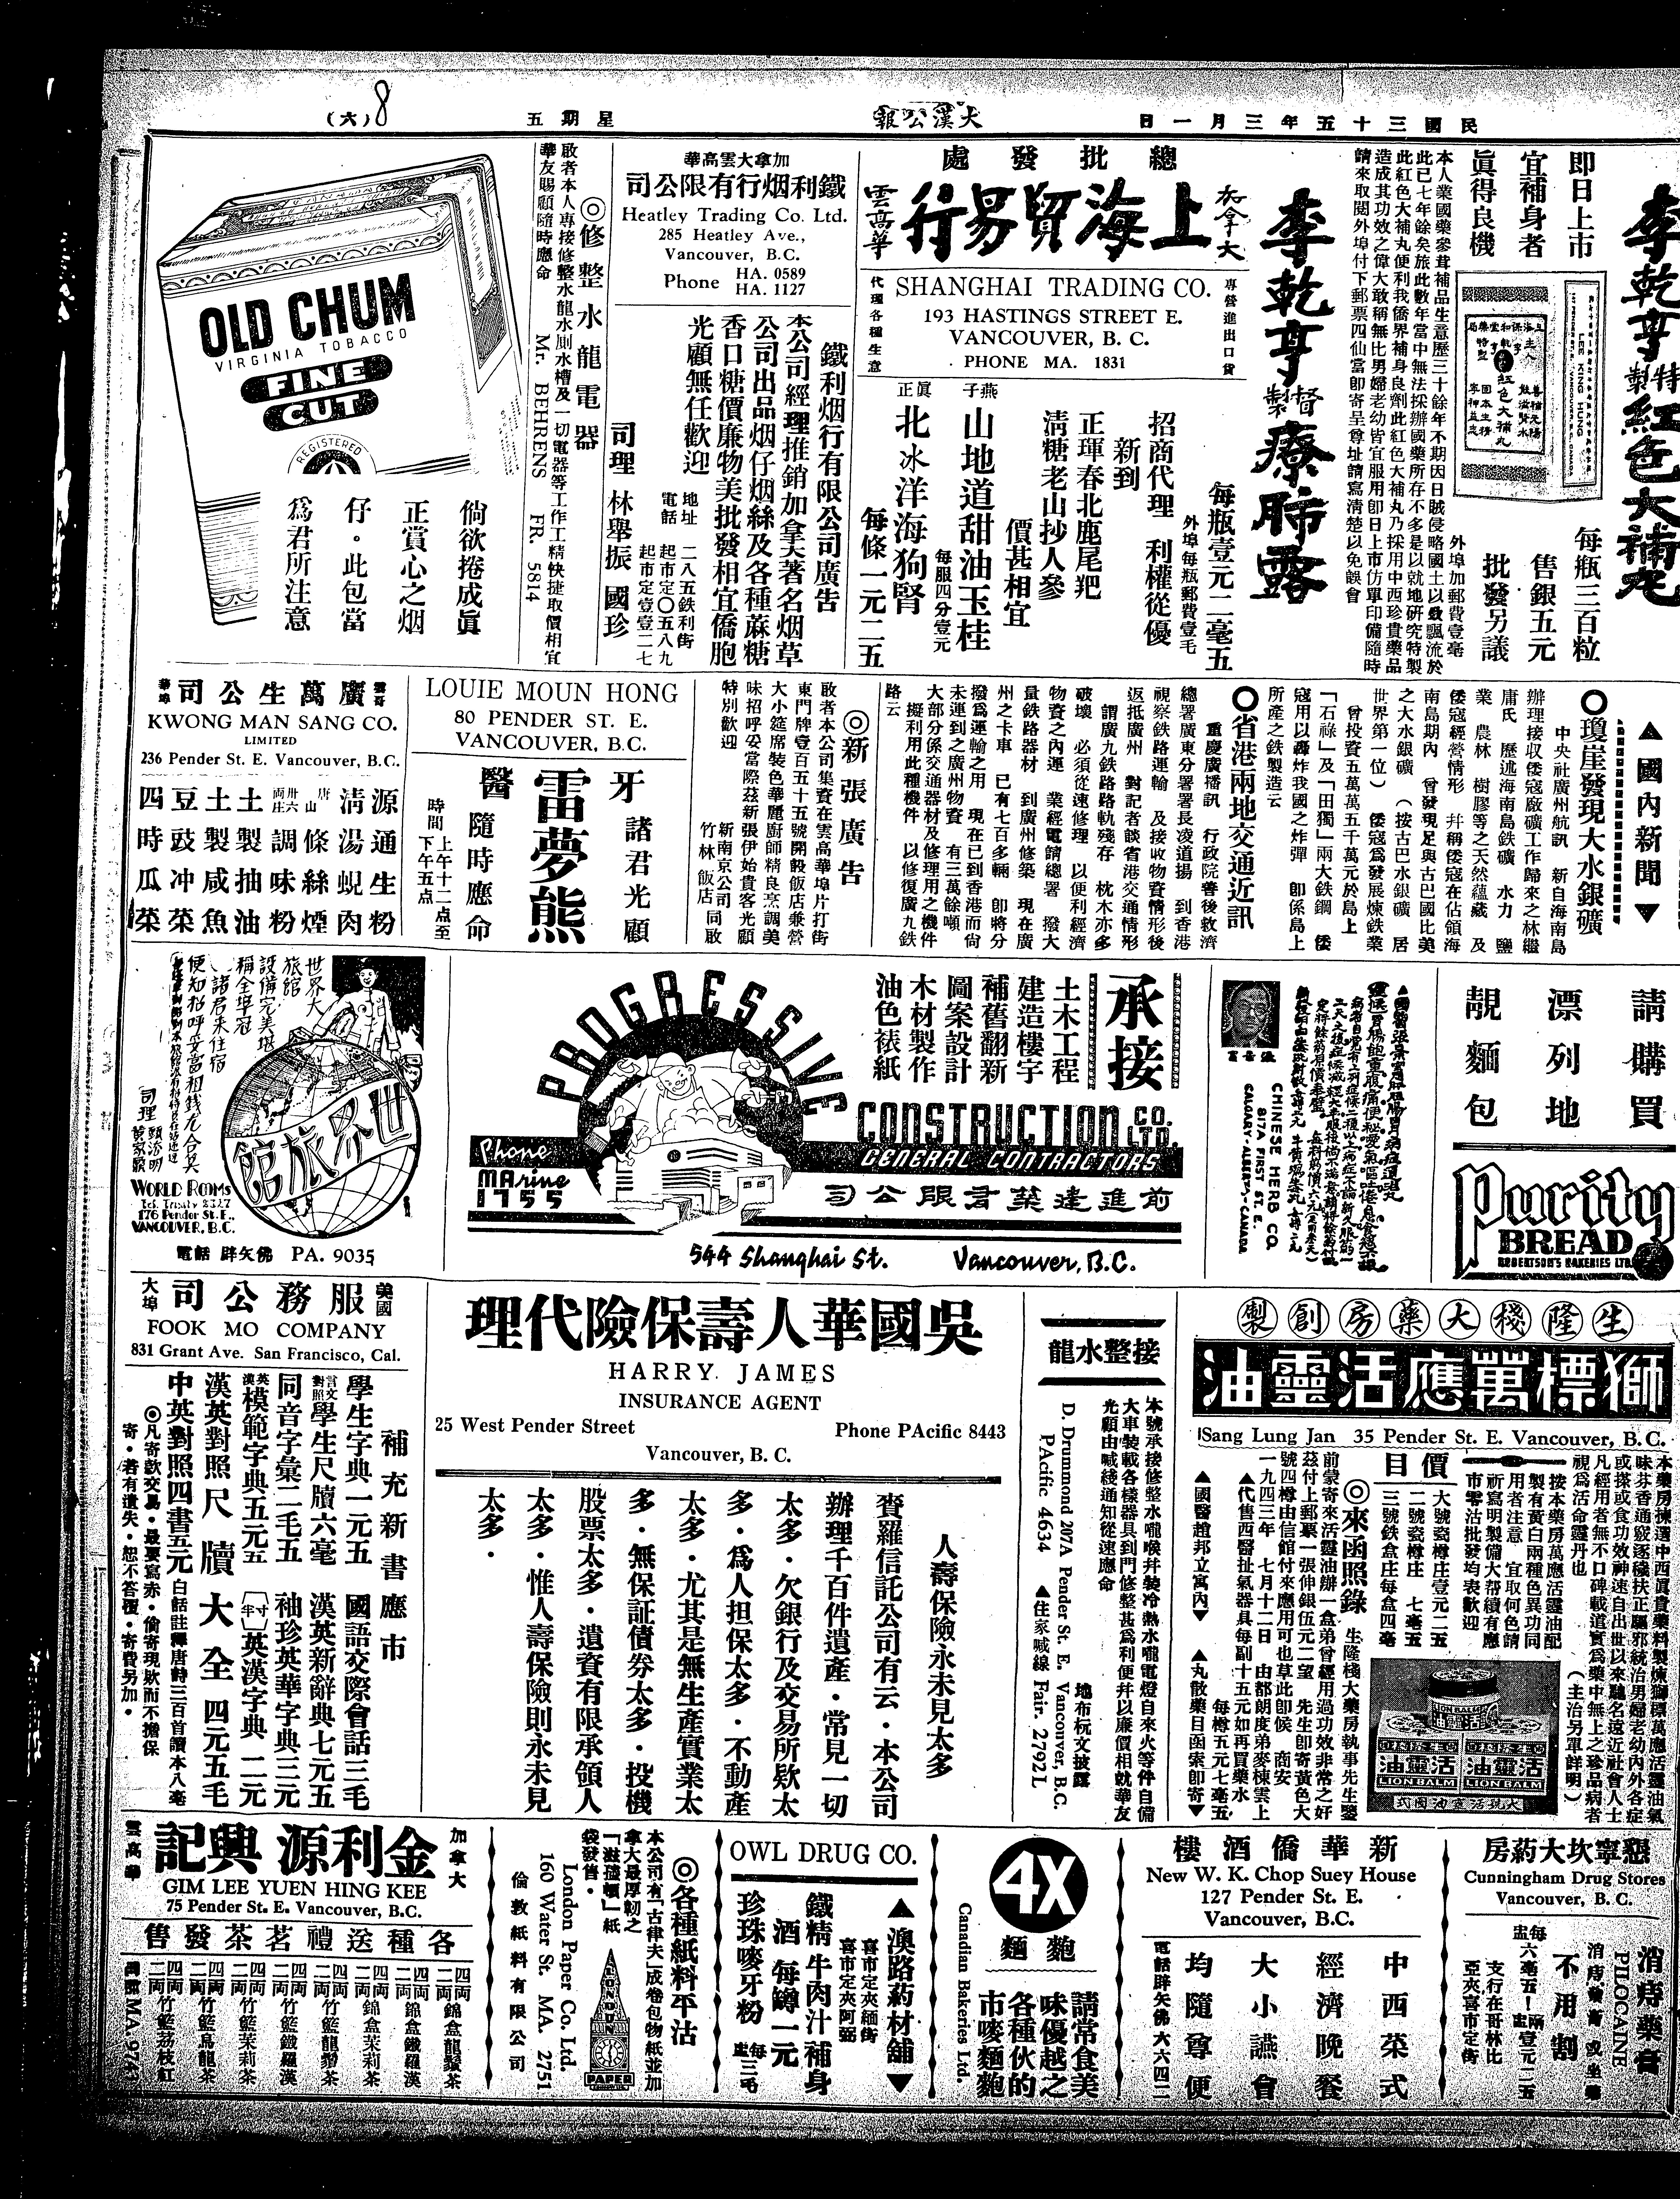 民國三十五年三月一日
大漢公報
星期五
(六)
8
即日上市
宜補身者
眞得良機
每瓶三百粒
售銀五元
批發另議
外埠加郵費壹毫
李乾亨特製紅色大補丸
本人業國藥參茸補品生意歷三十餘年不期因日賊侵略國土以致飄流於
此已七年餘矣旅此數年當中無法採辦國藥所存不多是以就地研究特製
此紅色大補丸便利我僑界補身良劑此紅色大補丸乃採用中西珍貴藥品
造成其功效之偉大敢稱無比男婦老幼皆宜服用即日上市仿單印備隨時
請來取閱外埠付下郵票四仙當即寄呈尊址請寫清楚以免誤會
李乾亨督製療肺露
每瓶壹元二毫五
外埠每瓶郵費壹毛
總批發處
加拿大
上海貿易行
雲高華
專營進出口貨
SHANGHAI TRADING CO.
193 HASTINGS STREET E.
VANCOUVER, B. C.
PHONE MA. 1831
代理各種生意
招商代理 利權從優
新到
正琿春北鹿尾羓
淸糖老山抄人參
價甚相宜
燕子
山地道甜油玉桂
每服四分壹元
眞正
北冰洋海狗腎
每條一元二五
加拿大雲高華
鐵利烟行有限公司
Heatley Trading Co. Ltd.
285 Heatley Ave.,
Vancouver, B.C.
Phone HA. 0589
HA. 1127
鐵利烟行有限公司廣告
本公司經理推銷加拿大著名烟草
公司出品烟仔烟絲及各種蔴糖
香口糖價廉物美批發相宜僑胞
光顧無任歡迎
地址 二八五鉄利街
電話 起市定〇五八九
起市定壹壹二七
司理 林舉振 國珍
◎修整水龍電器
敢者本人專接修整水龍水厠水槽及一切電器等工作工精快捷取價相宜
華友賜顧隨時應命
Mr. BEHRENS FR. 5814
OLD CHUM
VIRGINIA TOBACCO
FINE
CUT
REGISTERED
倘欲捲成眞
正賞心之烟
仔。此包當
爲君所注意
▲國內新聞▼
〇瓊崖發現大水銀礦
中央社廣州航訊 新自海南島
辦理接収倭寇廠礦工作歸來之林繼
庸氏 歷述海南島鉄礦 水力 鹽
業 農林 樹膠等之天然蘊藏 及
倭寇經營情形 幷稱倭寇在佔領海
南島期內 曾發現足與古巴國比美
之大水銀礦 (按古巴水銀礦 居
世界第一位) 倭寇爲發展煉鉄業
曾投資五萬萬五千萬元於島上
「石祿」及「田獨」兩大鉄鋼 倭
寇用以轟炸我國之炸彈 卽係島上
所產之鉄製造云
〇省港兩地交通近訊
重慶廣播訊 行政院善後救濟
總署廣東分署署長凌道揚 到香港
視察鉄路運輸 及接收物資情形後
返抵廣州 對記者談省港交通情形
謂廣九鉄路路軌殘存 枕木亦多
破壞 必須從速修理 以便利經濟
物資之內運 業經電請總署 撥大
量鉄路器材 到廣州修築 現在廣
州之卡車 已有七百多輛 卽將分
撥爲運輸之用 現在已到香港而尙
未運到之廣州物資 有三萬餘噸
大部分係交通器材及修理用之機件
擬利用此種機件 以修復廣九鉄
路云
◎新張廣告
敢者本公司集資在雲高華埠片打街
東門牌壹百五十五號開設飯店兼營
大小筵席裝色華麗廚師精良烹調美
味招呼妥當際茲新張伊始貴客光顧
特別歡迎
新南京公司
竹林飯店 同敢
LOUIE MOUN HONG
80 PENDER ST. E.
VANCOUVER, B.C.
牙醫
雷夢熊
諸君光顧
隨時應命
時間 上午十二点至
下午五点
雲哥華埠
廣萬生公司
KWONG MAN SANG CO.
LIMITED
236 Pender St. E. Vancouver, B.C.
源通生粉
淸湯蜆肉
唐山條絲煙
調味粉
土製抽油
土製咸魚
豆豉冲菜
四時瓜菜
請購買
漂列地
靚麵包
Purity
BREAD
ROBERTSON'S BAKERIES LTD.
CHINESE HERB CO.
817A FIRST ST. E.
CALGARY, ALBERTA, CANADA
承接
土木工程
建造樓宇
補舊翻新
圖案設計
木材製作
油色裱紙
PROGRESSIVE
CONSTRUCTION CO. LTD.
GENERAL CONTRACTORS
Phone
MArine
1755
前進建築有限公司
544 Shanghai St. Vancouver, B.C.
世界大
旅館
設備完美堪
稱全埠冠
諸君來住宿
便知招呼妥當租錢尤合算
世界旅館
WORLD ROOMS
176 Pender St. E.
VANCOUVER, B.C.
電話 睥矢佛 PA. 9035
生隆棧大藥房創製
獅標萬應活靈油
Sang Lung Jan 35 Pender St. E. Vancouver, B.C.
本藥房揀選中西眞貴藥料製煉獅標萬應活靈油氣
味芬香通竅逐穢扶正驅邪統治男婦老幼內外各症
或搽或食功效神速自出世以來馳名遠近社會人士
凡經用者無不口碑載道實爲藥中無上之珍品病者
視爲活命靈丹也 (主治另單詳明)
按本藥房萬應活靈油配
製有黃白兩種色異功同
用者注意 宜取何色請
祈寫明製備大帮續有應
市零沽批發均表歡迎
價目
大號瓷樽庄壹元二五
二號瓷樽庄 七毫五
三號鉄盒庄每盒四毫
◎來函照錄
生隆棧大藥房執事先生鑒
前蒙寄來活靈油辦一盒弟曾經用過功效非常之好
茲付上郵票一張伸銀伍元二望 先生卽寄黃色大
號四樽由信館付來應用可也草此卽候 商安
一九四三年 七月十二日 由都朗度弟麥棟雲上
▲代售西醫扯氣器具每副十五元如再買藥水
每樽五元七毫五
▲國醫趙邦立寓內▼ ▲丸散藥目函索卽寄▼
LION BALM
活靈油
LION BALM
活靈油
LION BALM
大號活靈油圖式
接整水龍
本號承接修整水嚨喉幷裝冷熱水嚨電燈自來火等件自備
大車裝載各樣器具到門修整甚爲利便幷以廉價相就華友
光顧由喊綫通知從速應命
地布杬文披露
D. Drummond 207A Pender St. E. Vancouver, B.C.
PAcific 4634 ▲住家喊線 Fair. 2792L
吳國華人壽保險代理
HARRY JAMES
INSURANCE AGENT
25 West Pender Street Phone PAcific 8443
Vancouver, B. C.
人壽保險永未見太多
賚羅信託公司有云・本公司
辦理千百件遺產・常見一切
太多・欠銀行及交易所欵太
多・爲人担保太多・不動產
太多・尤其是無生產實業太
多・無保証債券太多・投機
股票太多・遺資有限承領人
太多・惟人壽保險則永未見
太多・
美國大埠
服務公司
FOOK MO COMPANY
831 Grant Ave. San Francisco, Cal.
補充新書應市
學生字典一元五 國語交際會話三毛
言文對照學生尺牘六毫 漢英新辭典七元五
同音字彙二毛五 袖珍英華字典三元
英漢模範字典五元五 英漢字典 二元
漢英對照尺牘大全 四元五毛
中英對照四書五元 白話註釋唐詩三百首讀本八毫
◎凡寄款交易・最要寫赤・倘寄現欵而不擔保
寄・若有遺失・恕不答覆・寄費另加・
懇寧坎大葯房
Cunningham Drug Stores
Vancouver, B. C.
消痔藥膏
PHOCAINE
不用割
每盅六毫五!兩盅壹元二五
支行在哥林比
亞夾喜市定街
新華僑酒樓
New W. K. Chop Suey House
127 Pender St. E.
Vancouver, B.C.
中西菜式
經濟晚餐
大小讌會
均隨尊便
電話睥矢佛六六四二
4X
麵麭
請常食美
味優越之
各種伙的
市嘜麵麭
Canadian Bakeries Ltd.
OWL DRUG CO.
▲澳路葯材舖▼
喜市定夾緬街
喜市定夾阿弼
鐵精牛肉汁補身
酒 每罇一元
珍珠嘜牙粉 每盅三毛
◎各種紙料平沽
本公司有「古律夫」成卷包物紙並加
拿大最厚韌之
袋發售・
London Paper Co. Ltd.
160 Water St. MA. 2751
倫敦紙料有限公司
LONDON
PAPER
加拿大
金利源興記
雲高華
GIM LEE YUEN HING KEE
75 Pender St. E. Vancouver, B.C.
各種送禮茗茶發售
四両二両 錦盒龍鬚茶
四両二両 錦盒鐵羅漢
四両二両 錦盒茉莉茶
四両二両 竹籃龍鬚茶
四両二両 竹籃鐵羅漢
四両二両 竹籃茉莉茶
四両二両 竹籃烏龍茶
四両二両 竹籃荔枝紅
電話MA. 9743